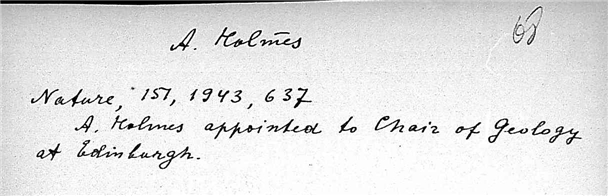 A. Holmes
Nature, 151, 1943, 637
A. Holmes appointed to Chair of Geology
at Edinburgh.